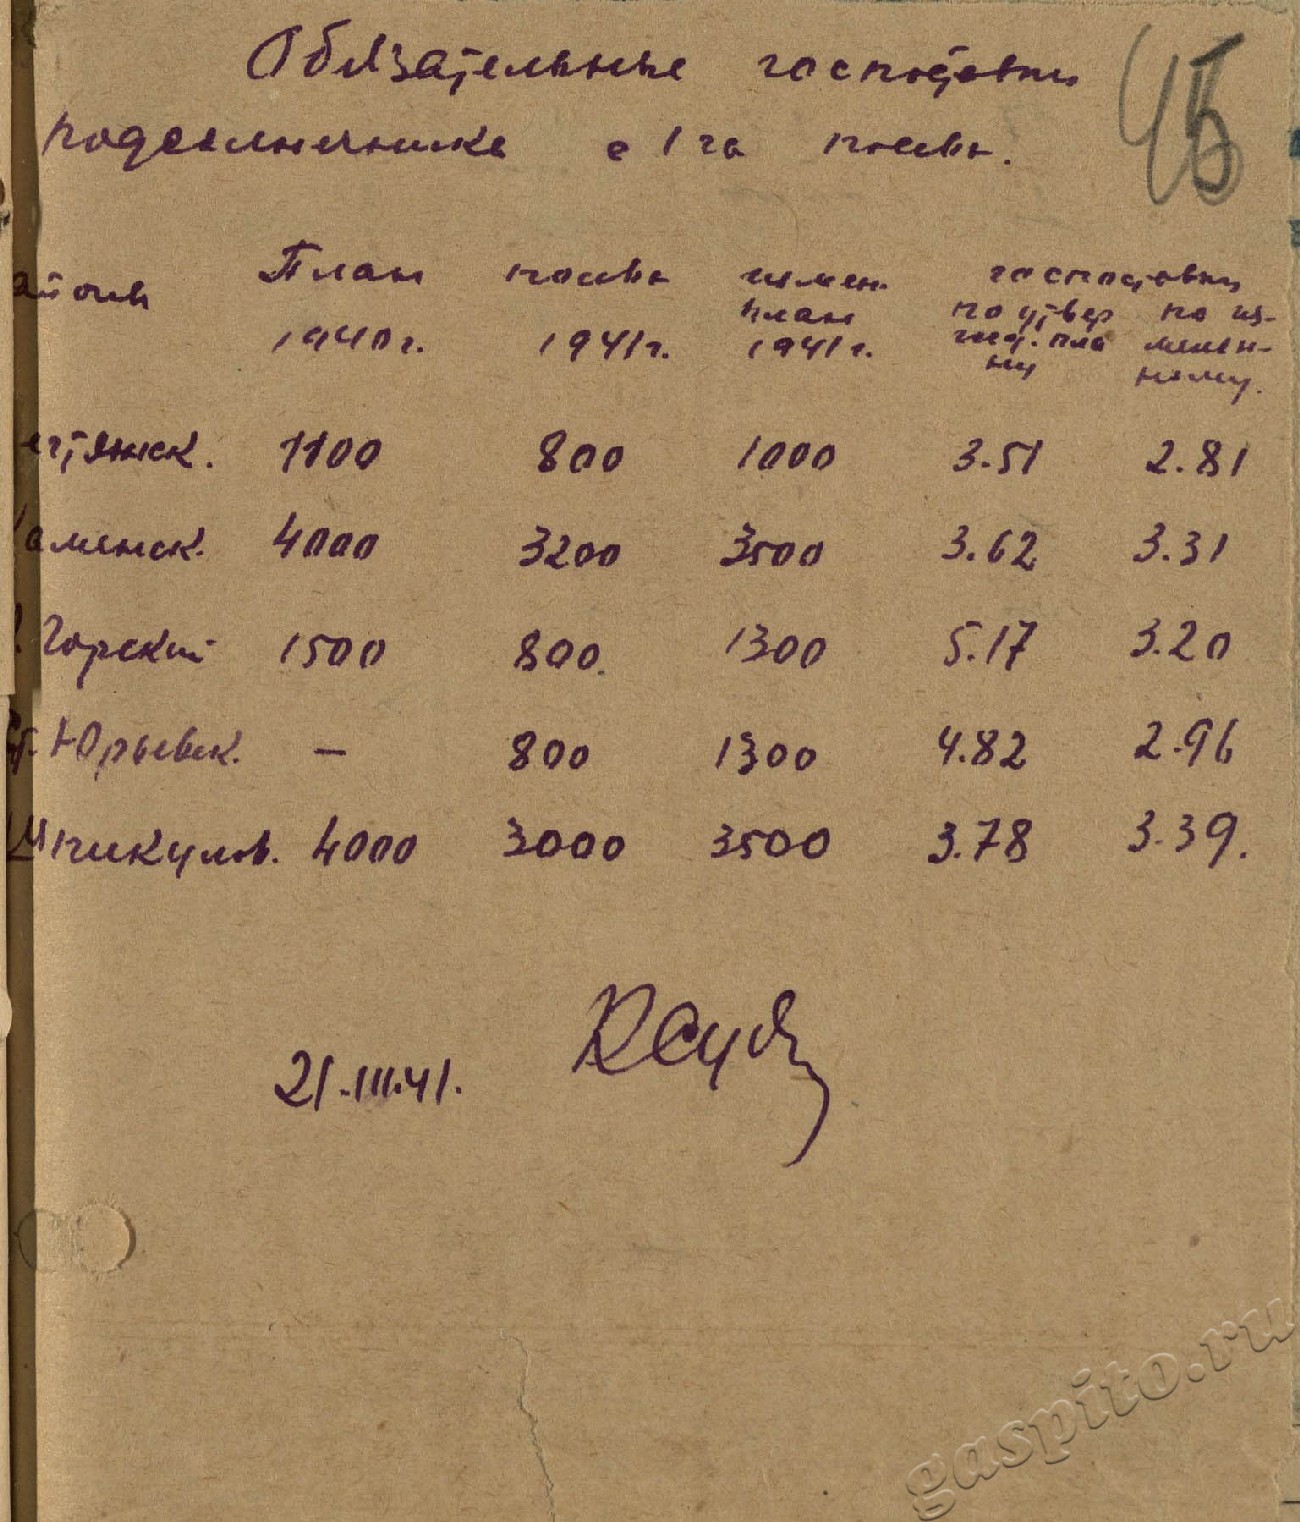 Обязательные госпоставки
подсолнечника с 1 га посева.
45
айоны План посева измен. госпоставки
план по утвер по из-
1940 г. 1941 г. 1941 г. жд. пла менен-
ну ному.
егтянск. 1100 800 1000 3.51 2.81
аменск. 4000 3200 3500 3.62 3.31
Горский 1500 800. 1300 5.17 3.20
Ст. Юрьевск. — 800 1300 4.82 2.96
Шпикулов. 4000 3000 3500 3.78 3.39.
21.III.41.
gaspito.ru